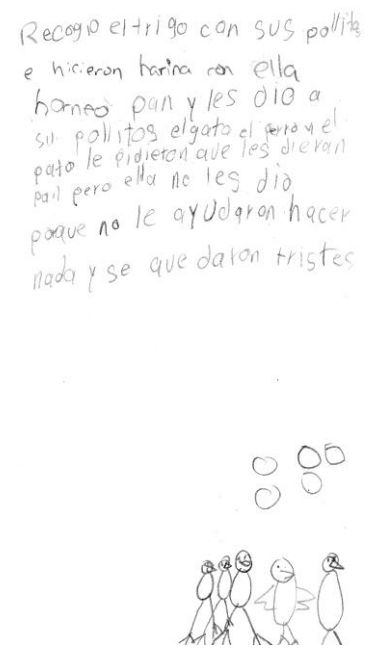 Recogio el trigo con sus pollitos
e hicieron harina con ella
horneo pan y les dio a
su pollitos el gato el perro y el
pato le pidieron que les dieran
pan pero ella no les dio
poque no le ayudaron hacer
nada y se quedaron tristes